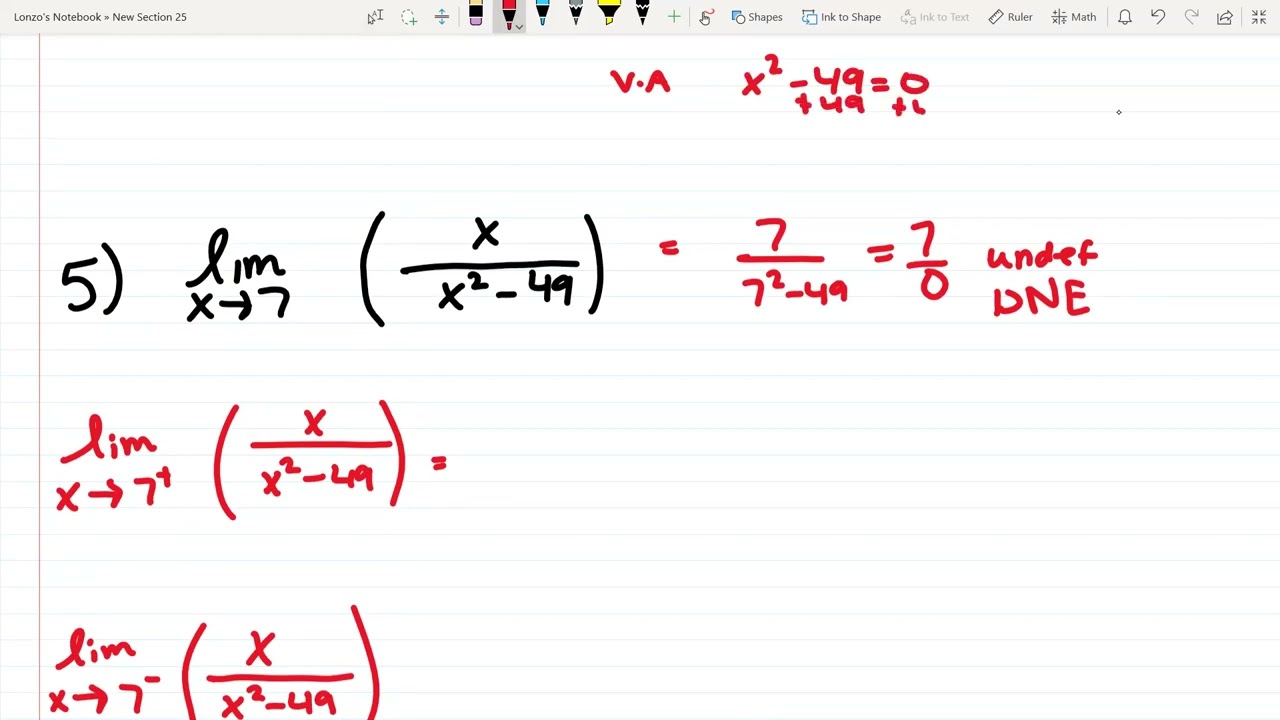 Lonzo's Notebook » New Section 25
Shapes Ink to Shape Ink to Text Ruler Math
V.A x² - 49 = 0
+49 +
5) lim x→7 ( x / x² - 49 ) = 7 / 7² - 49 = 7 / 0 undef
DNE
lim x→7⁺ ( x / x² - 49 ) =
lim x→7⁻ ( x / x² - 49 )